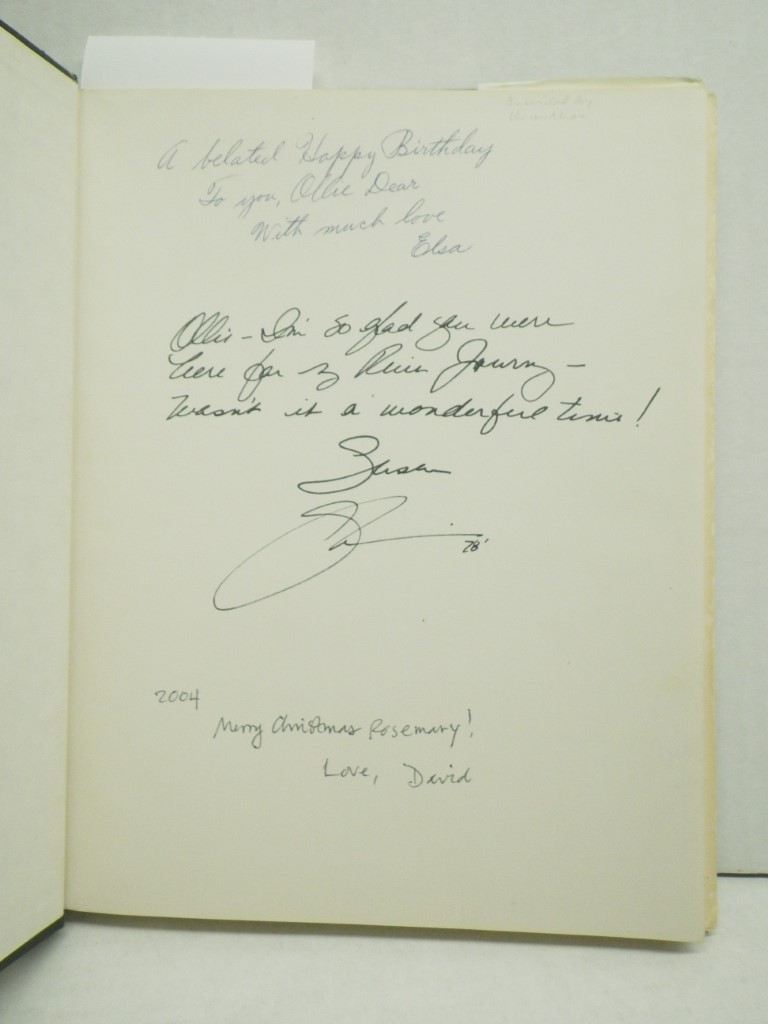 A belated Happy Birthday
To you, Ollie Dear
With much love
Elsa
Ollie – I'm so glad you were
here for my River Journey –
Wasn't it a wonderful time!
Susan
78'
2004
Merry Christmas Rosemary!
Love, David